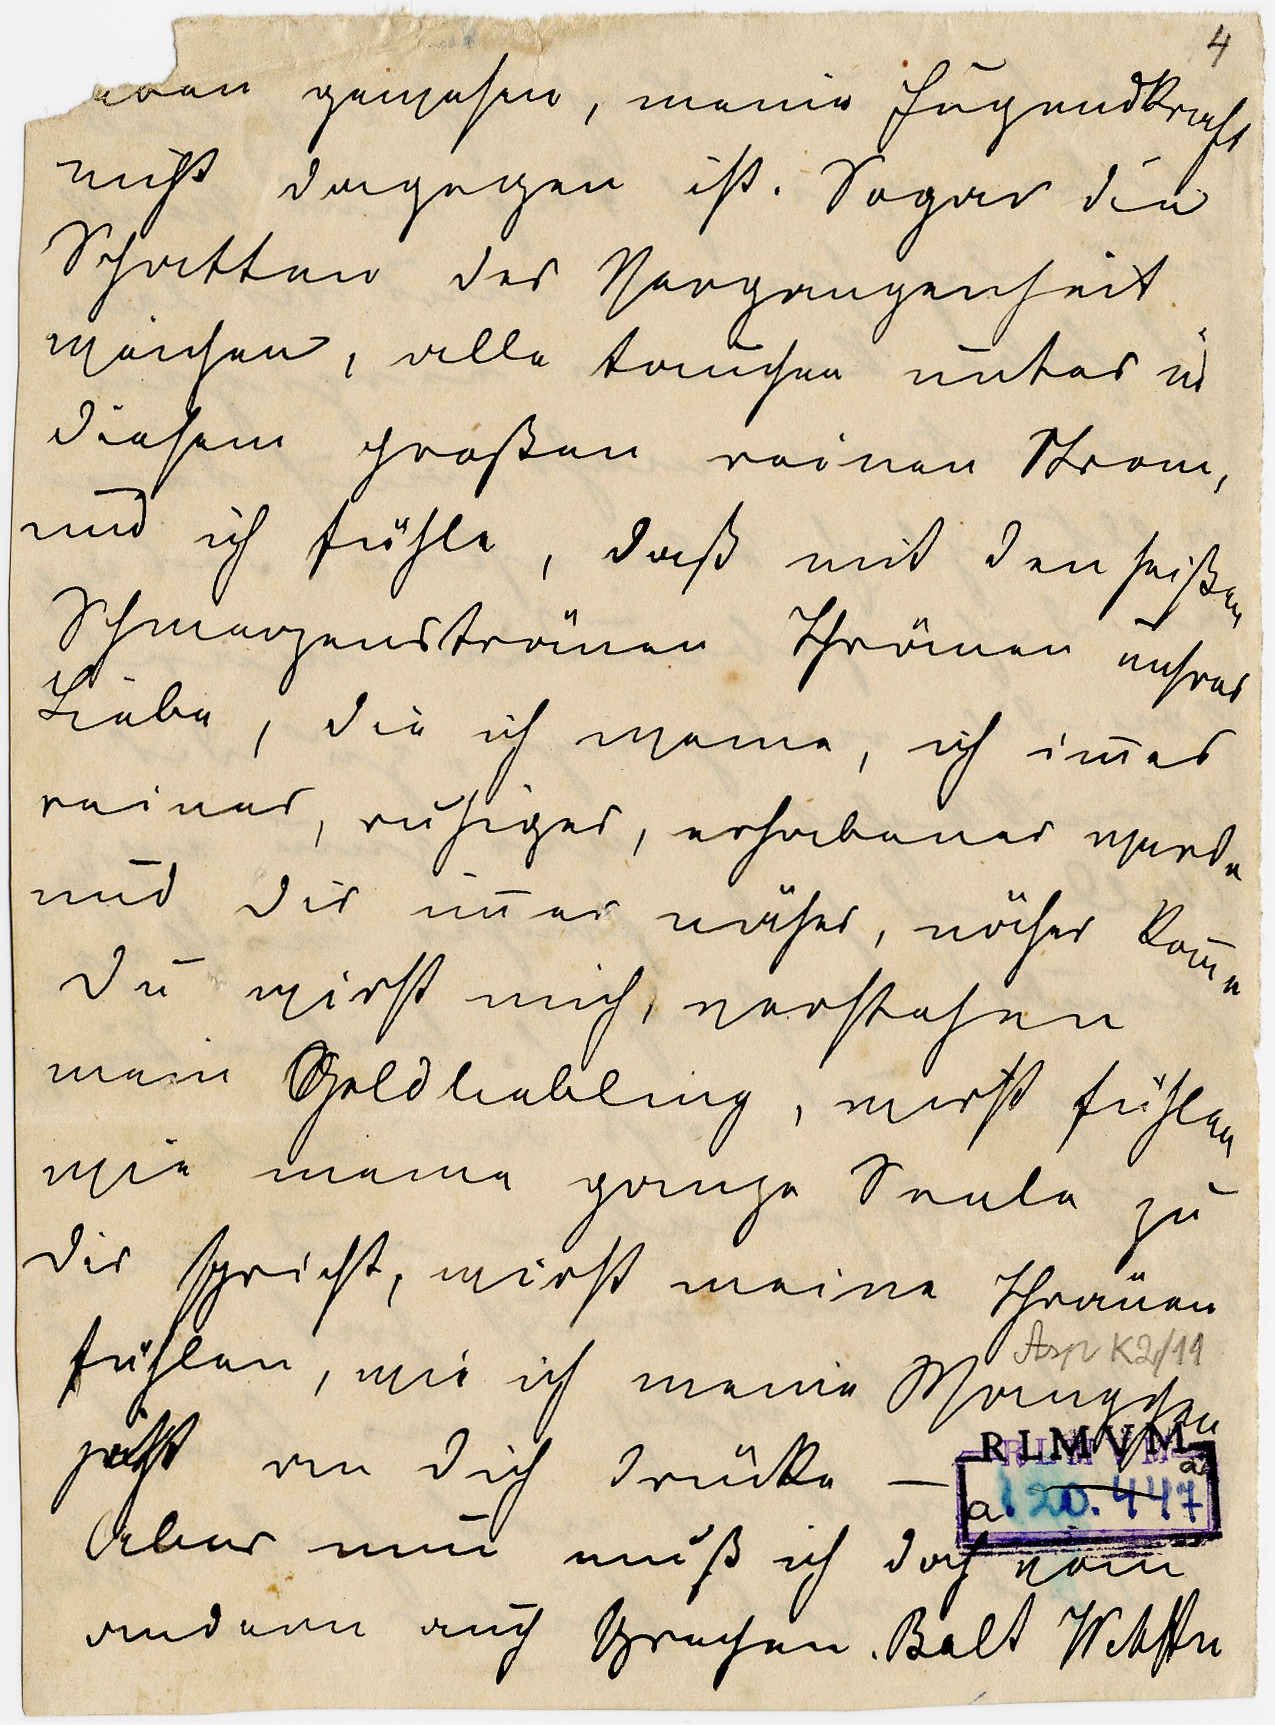 4
eben gewesen, meine Jugendkraft
nicht dagegen ist. Sogar die
Schatten der Vergangenheit
weichen, alle tauchen unter in
diesem großen reinen Strom,
und ich fühle, daß mit den heißen
Schmerzenstränen Thränen unsrer
Liebe, die ich weine, ich im̄er
reiner, ruhiger, erhabener werde
und dir im̄er näher, näher kom̄e
Du wirst mich, verstehen
mein Goldliebling, wirst fühlen
wie meine ganze Seele zu
dir spricht, wirst meine Thränen
fühlen, wie ich meine
Asp K2/11
an dich drücke —
RLMVM
a 120.447
Aber nun muß ich doch vom
andern auch sprechen. Balt